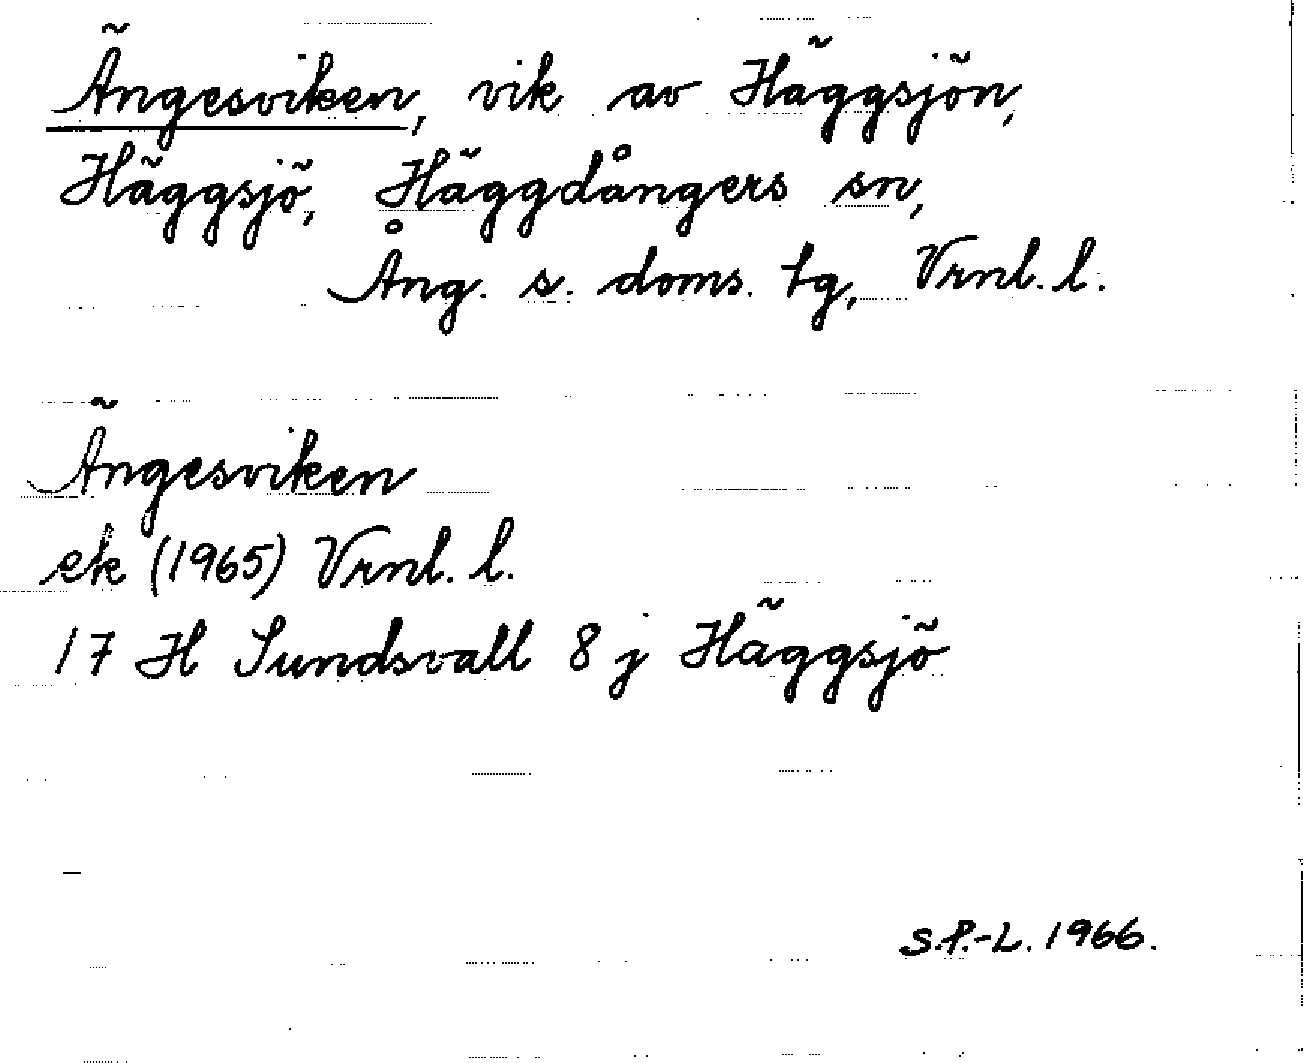 Ängesviken, vik av Häggsjön,
Häggsjö, Häggdångers sn,
Ång. s. doms. tg, Vrnl. l.
Ängesviken
ek (1965) Vrnl. l.
17 H Sundsvall 8 j Häggsjö
S.P.-L. 1966.